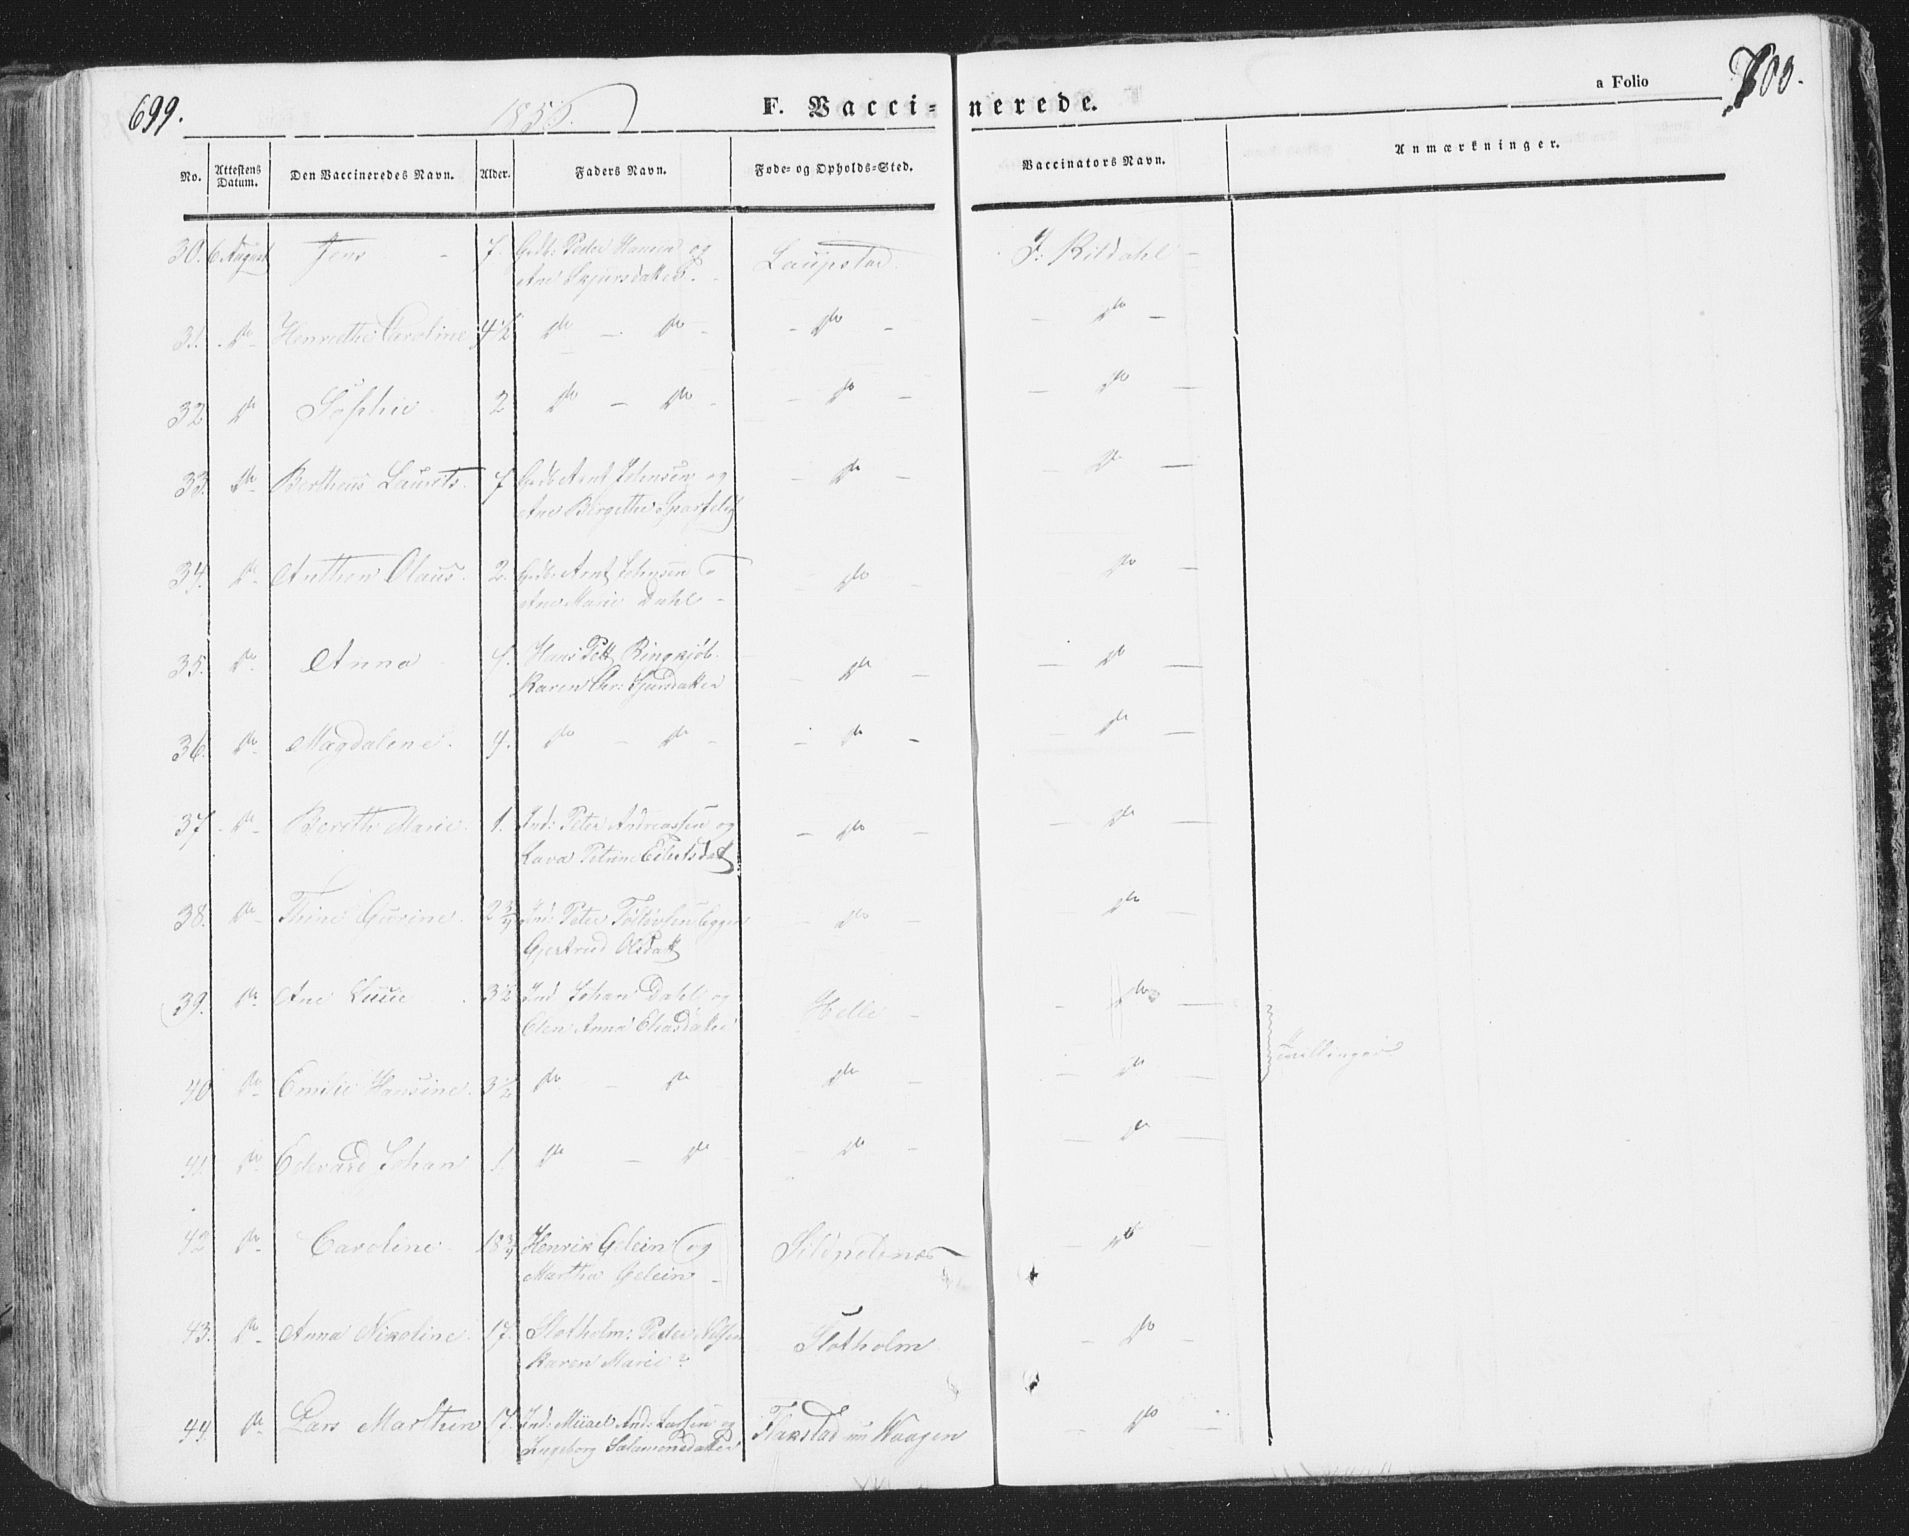 699.
1856.
F. Vacci-nerede.
a Folio
700.
No. Attestens Datum. Den Vaccineredes Navn. Alder. Faders Navn. Føde- og Opholds-Sted. Vaccinators Navn. Anmærkninger.
30. 6 August Jens - 7. Gdb: Peder Hansen og Laupstad. J: Kildahl -
Ane Sjursdatter.
31. do Henriethe Caroline 4 1/2 do - do - - do - - do -
32 do Sophie 2 do - do - - do - - do -
33. do Bertheus Laurits. 7 Gdb Arnt Johnsen og - do - - do -
Ane Bergethe
34. do Anthon Olaus. 2. Gdb: Arnt Johnsen - do - - do -
Ane Marie Dahl -
35. do Anna 7. Hans Pett Ringkjøb. - do - - do -
Karen Chr: Sjursdatter
36. do Magdalene. 4. do - do - - do - - do -
37. do Bereth Marie. 1. Ind: Peter Andreassen og - do - - do -
Lava Petrine Eilertsdatt
38. do Thine Gurine. 2 3/4 Ind: Peter - do - - do -
Gjertrud Olsdatt
39. do Ane 3 1/2 Ind Johan Dahl og Helle - - do -
Elen Anna Eliasdatter
40 do Emilie Hansine. 3 1/2 do - do do - - do - tvillinger
41. do Edevard Johan 1. do - do - do - - do -
42 do Caroline 18 3/4 Henrik Gelein og - do -
Martha Gelein -
43. do Anna Nikoline. 17. Slotholm: Peder Nilsen Slotholm - do -
Karen Marie?
44 do Lars Marthin 17. Ind: Mikael And: Larsen og Flakstad nu Waagen - do -
Ingeborg Salamonsdatter